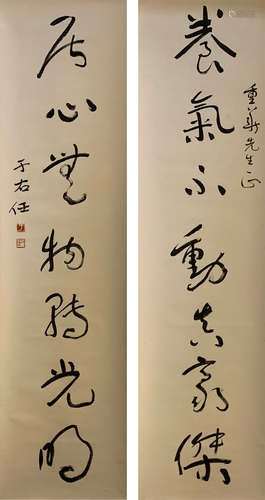 養氣不動真豪傑
重華先生正
居心無物轉光明
于右任